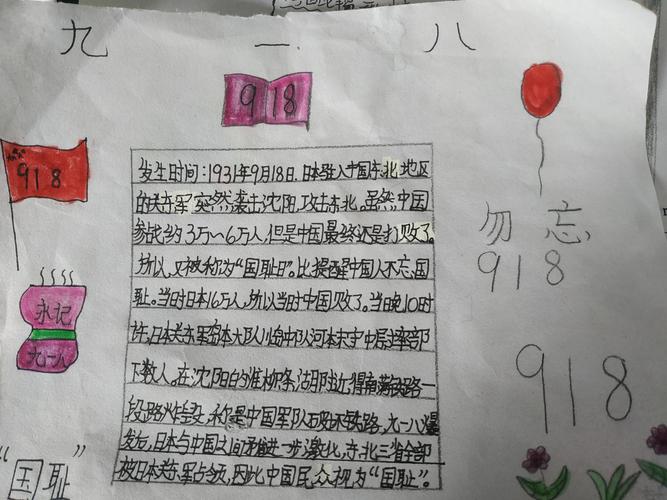 九 一 八
918
918
发生时间：1931年9月18日.日本驻入中国东北地区
的关东军突然袭击沈阳,攻击东北。虽然中国
参战约3万~6万人,但是中国最终还是打败了。
所以,又被称为“国耻日”。比提醒中国人不忘国
耻。当时日本1.6万人,所以当时中国败了。当晚10时
许,日本关东军岛本大队川岛中队河本末守中尉率部
下数人,在沈阳白的柳条湖附近将南满铁路一
段路炸毁,称是中国军队破坏铁路。九一八爆
发后,日本与中国之间矛盾进一步激化,东北三省全部
被日本关东军占领,因此中国民众视为“国耻”。
永记
九一八
勿忘
918
918
“国耻”